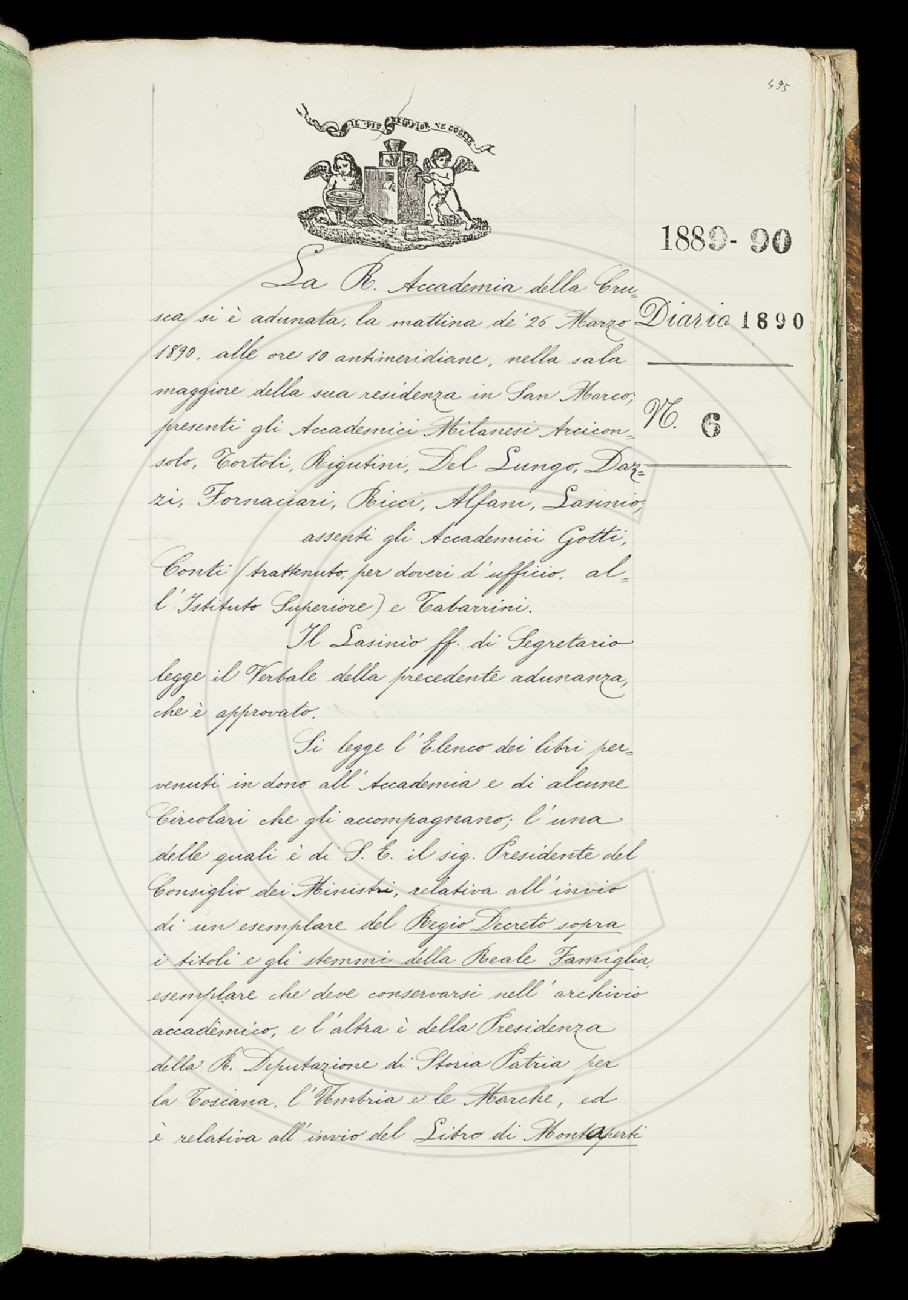 495
IL PIÙ BEL FIOR NE COGLIE
1889-90
La R. Accademia della Cru=
sca si è adunata, la mattina de' 26 Marzo
Diario 1890
1890, alle ore 10 antimeridiane, nella sala
maggiore della sua residenza in San Marco;
presenti gli Accademici Milanesi Arcicon=
N. 6
solo, Tortoli, Rigutini, Del Lungo, Daz=
zi, Fornaciari, Ricci, Alfani, Lasinio;
assenti gli Accademici Gotti,
Conti (trattenuto, per doveri d'ufficio, al=
l'Istituto Superiore) e Tabarrini.
Il Lasinio ff. di Segretario
legge il Verbale della precedente adunanza,
che è approvato.
Si legge l'Elenco dei libri per=
venuti in dono all'Accademia e di alcune
Circolari che gli accompagnano; l'una
delle quali è di S. E. il sig. Presidente del
Consiglio dei Ministri, relativa all'invio
di un esemplare del Regio Decreto sopra
i titoli e gli stemmi della Reale Famiglia,
esemplare che deve conservarsi nell'archivio
accademico, e l'altra è della Presidenza
della R. Deputazione di Storia Patria per
la Toscana, l'Umbria e le Marche, ed
è relativa all'invio del Libro di Montaperti